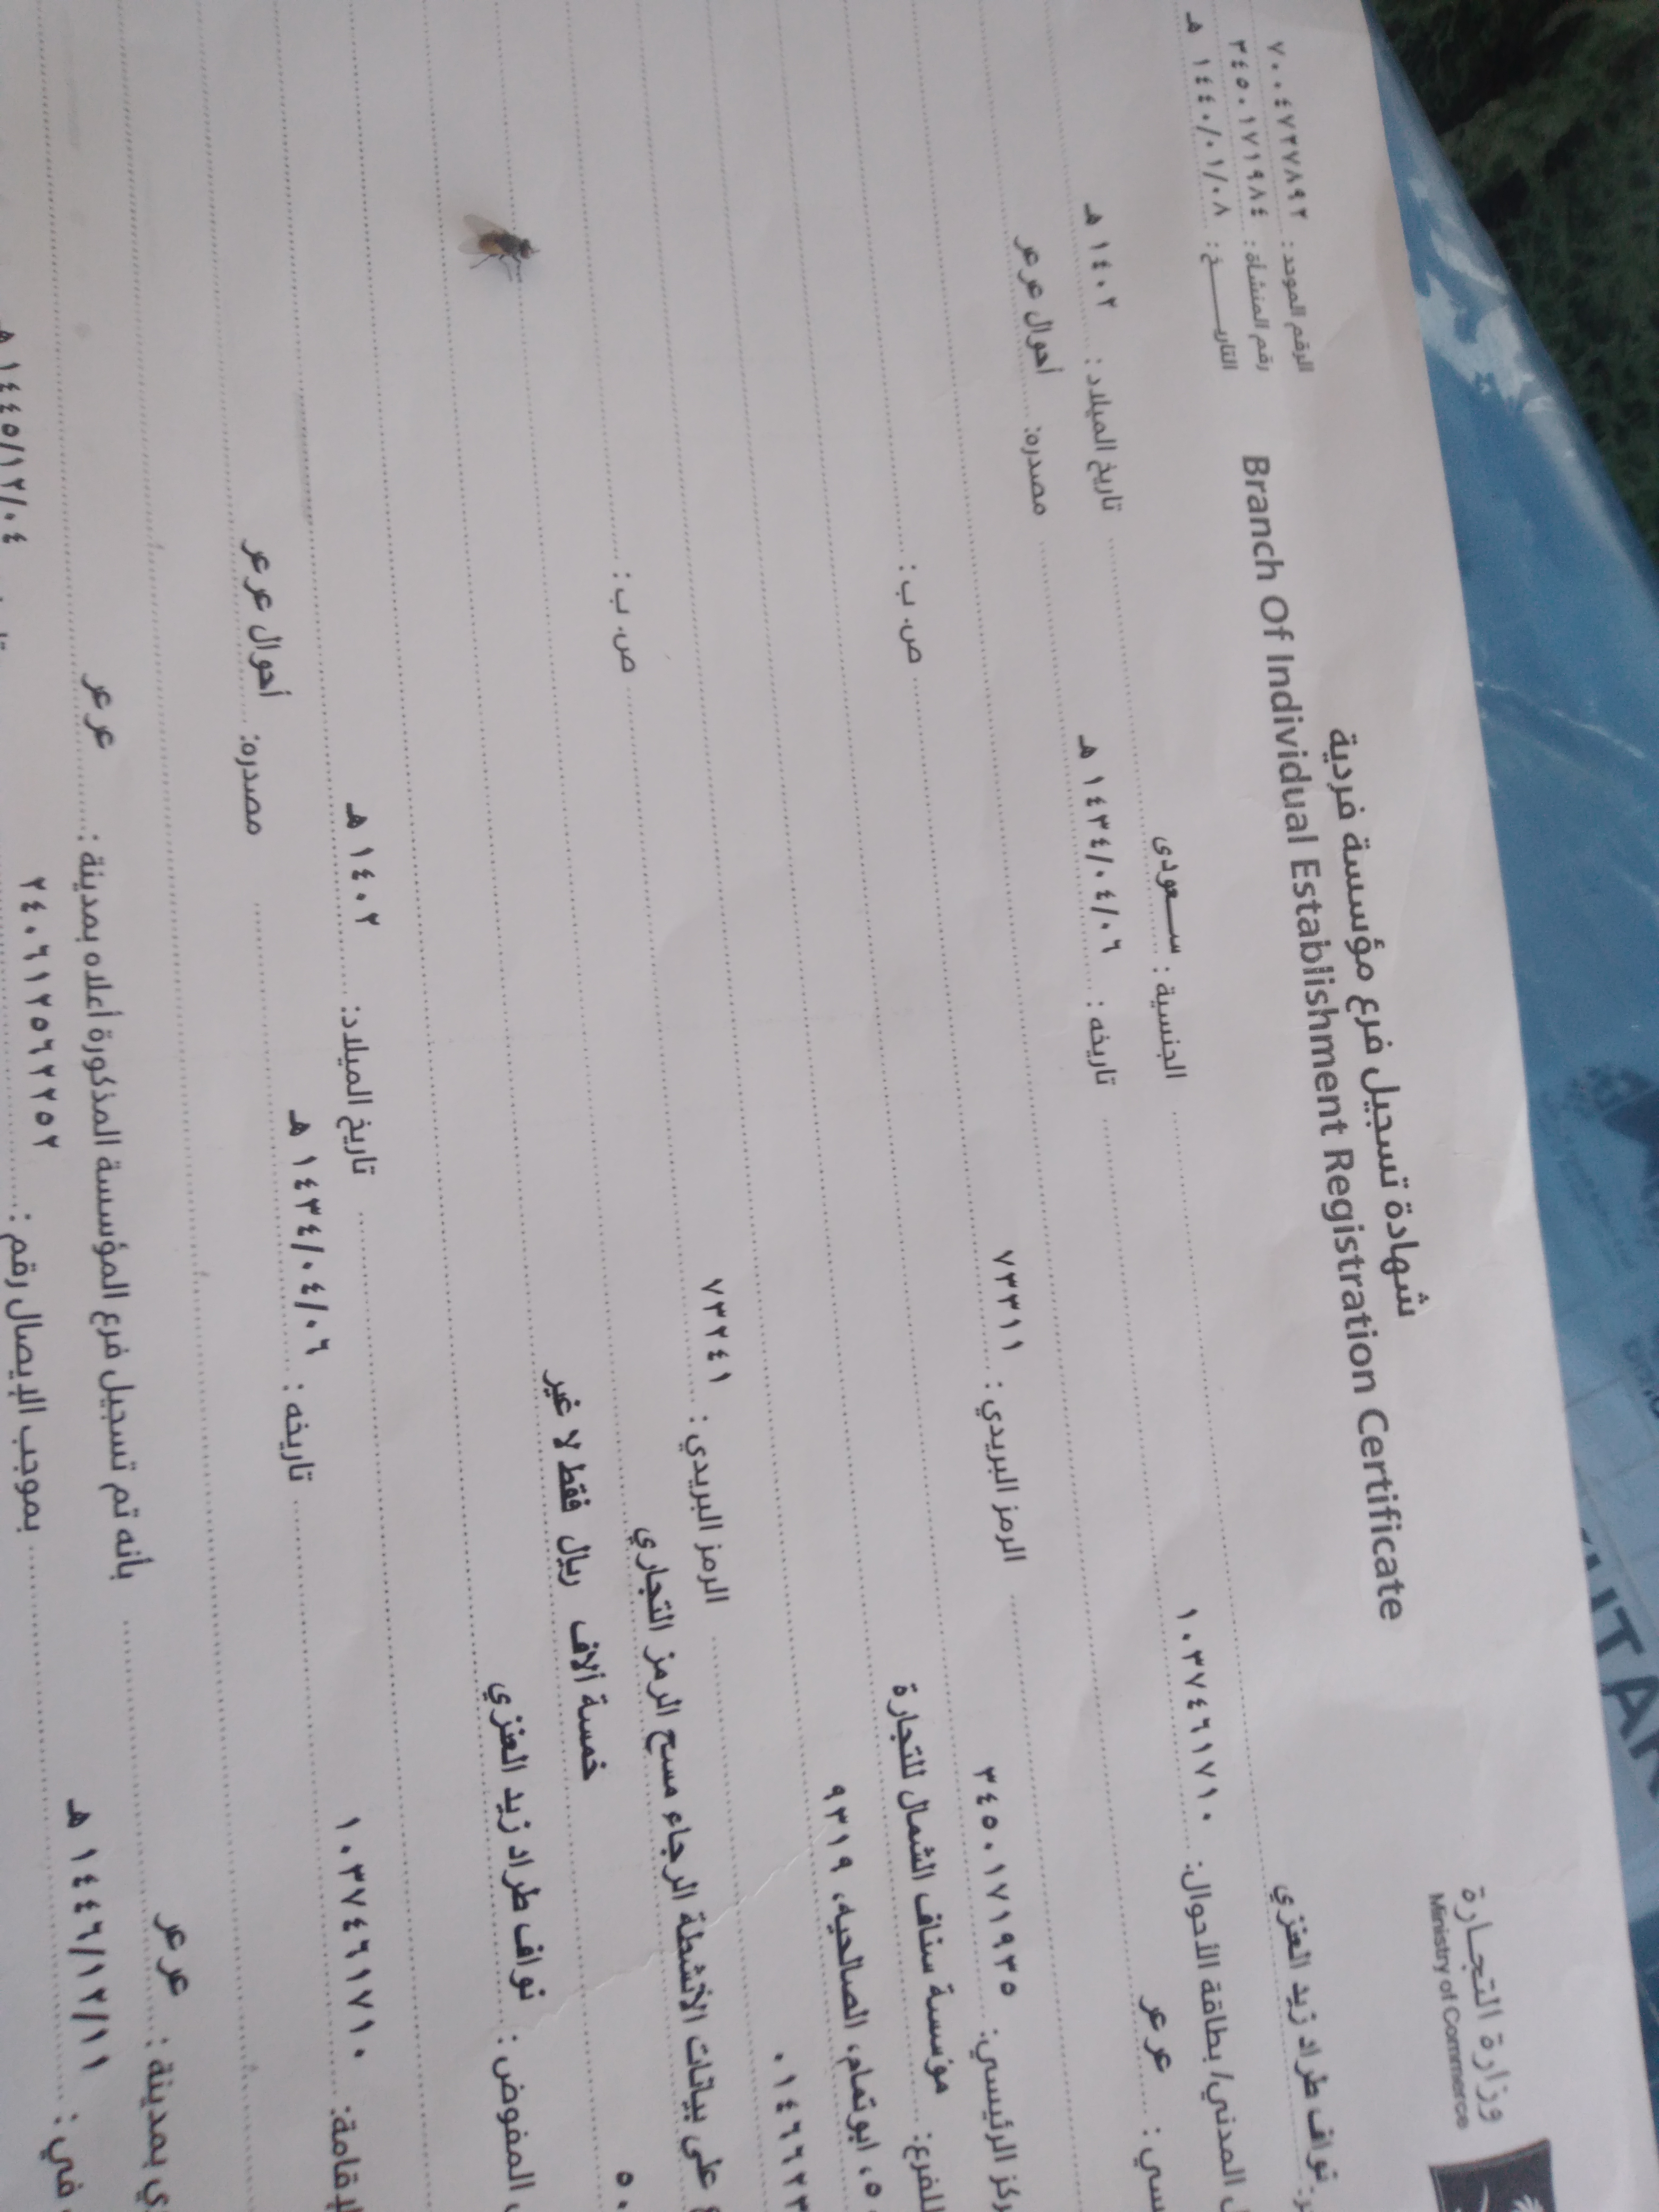 وزارة التجـارة
Ministry of Commerce
شهادة تسجيل فرع مؤسسة فردية
Branch Of Individual Establishment Registration Certificate
الرقم الموحد: ٧٠٠٤٧٢٧٨٩٢
رقم المنشأة: ٣٤٥٠١٧١٩٨٤
التاريـــــخ: ١٤٤٠/٠١/٠٨ هـ
نواف طراد زيد العنزي
المدني/ بطاقة الأحوال: ١٠٣٧٤٦١٧١٠ الجنسية : سـعودى تاريخ الميلاد : ١٤٠٢ هـ
عرعر تاريخه : ١٤٣٤/٠٤/٠٦ هـ مصدره: أحوال عرعر
الرئيسي: ٣٤٥٠١٧١٩٣٥ الرمز البريدي : ٧٣٣١١
للفرع: مؤسسة سناف الشمال للتجارة ص. ب :
٥، ابوتمام، الصالحيه، ٩٣١٩
الرمز البريدي : ٧٣٢٤١ ص. ب :
على بيانات الأنشطة الرجاء مسح الرمز التجاري
خمسة آلاف ريال فقط لا غير
المفوض : نواف طراد زيد العنزي
١٠٣٧٤٦١٧١٠ تاريخ الميلاد: ١٤٠٢ هـ
تاريخه : ١٤٣٤/٠٤/٠٦ هـ مصدره: أحوال عرعر
بمدينة : عرعر بأنه تم تسجيل فرع المؤسسة المذكورة أعلاه بمدينة : عرعر
في : ١٤٤٦/١٢/١١ هـ بموجب الإيصال رقم : ٢٤٠٦١٢٥٦٢٢٥٢ ١٤٤٥/١٢/٠٤ هـ